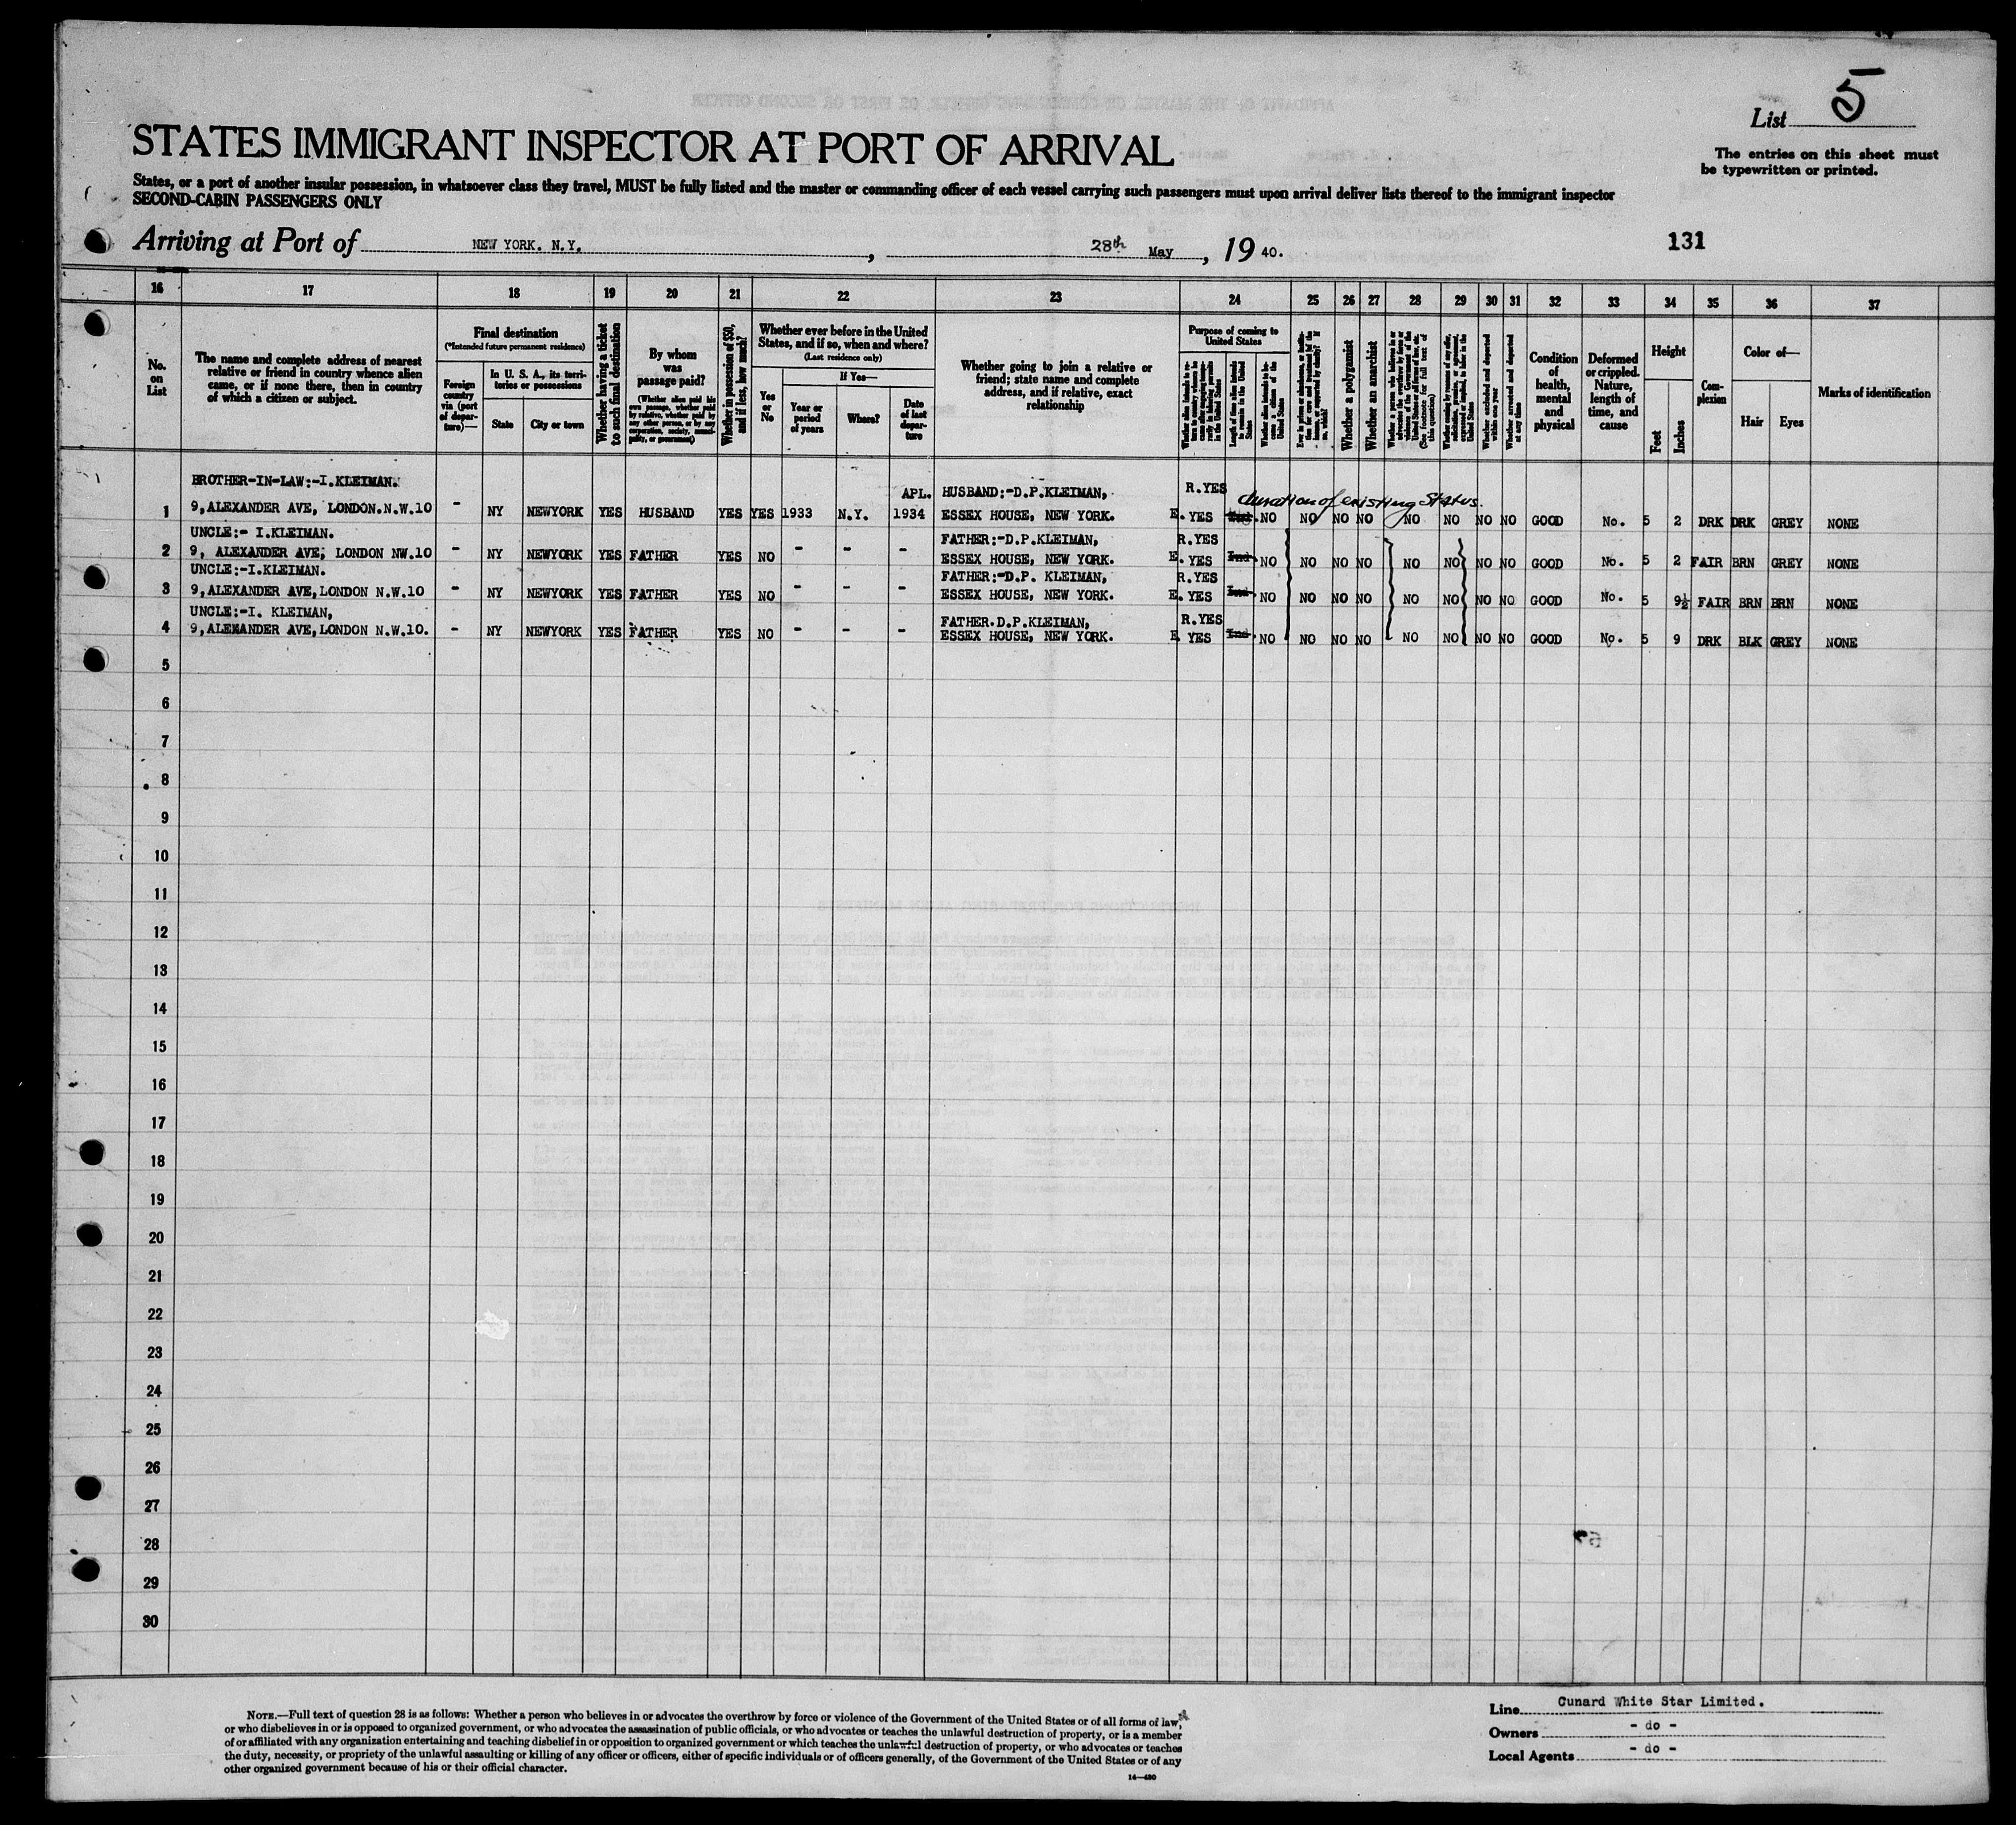 List 5
STATES IMMIGRANT INSPECTOR AT PORT OF ARRIVAL
The entries on this sheet must
be typewritten or printed.
States, or a port of another insular possession, in whatsoever class they travel, MUST be fully listed and the master or commanding officer of each vessel carrying such passengers must upon arrival deliver lists thereof to the immigrant inspector
SECOND-CABIN PASSENGERS ONLY
Arriving at Port of NEW YORK. N.Y. , 28th May , 19 40.
131
16 17 18 19 20 21 22 23 24 25 26 27 28 29 30 31 32 33 34 35 36 37
No.
on
List
The name and complete address of nearest
relative or friend in country whence alien
came, or if none there, then in country
of which a citizen or subject.
Final destination
(*Intended future permanent residence)
Foreign
country
via (port
of depar-
ture)—
In U. S. A., its terri-
tories or possessions
State
City or town
Whether having a ticket
to such final destination
By whom
was
passage paid?
(Whether alien paid his
own passage, whether paid
by relative, whether paid by
any other person, or by any
corporation, society, munici-
pality, or government)
Whether in possession of $50,
and if less, how much?
Whether ever before in the United
States, and if so, when and where?
(Last residence only)
Yes
or
No
If Yes—
Year or
period
of years
Where?
Date
of last
depar-
ture
Whether going to join a relative or
friend; state name and complete
address, and if relative, exact
relationship
Purpose of coming to
United States
Length of time alien intends
to remain in the United
States
Whether alien intends to be-
come a citizen of the
United States
Whether a polygamist
Whether an anarchist
Whether arrested and deported
at any time
Condition
of
health,
mental
and
physical
Deformed
or crippled.
Nature,
length of
time, and
cause
Height
Feet
Inches
Com-
plexion
Color of—
Hair
Eyes
Marks of identification
BROTHER-IN-LAW:-I.KLEIMAN. APL. HUSBAND:-D.P.KLEIMAN, R.YES duration of existing Status.
1 9,ALEXANDER AVE, LONDON.N.W.10 - NY NEWYORK YES HUSBAND YES YES 1933 N.Y. 1934 ESSEX HOUSE, NEW YORK. E. YES NO NO NO NO NO NO NO NO GOOD No. 5 2 DRK DRK GREY NONE
UNCLE:- I.KLEIMAN. FATHER:-D.P.KLEIMAN, R.YES
2 9, ALEXANDER AVE, LONDON NW.10 - NY NEWYORK YES FATHER YES NO - - - ESSEX HOUSE, NEW YORK. E. YES Ind. NO NO NO NO NO NO NO NO GOOD No. 5 2 FAIR BRN GREY NONE
UNCLE:-I.KLEIMAN. FATHER:-D.P. KLEIMAN, R.YES
3 9,ALEXANDER AVE,LONDON N.W.10 - NY NEWYORK YES FATHER YES NO - - - ESSEX HOUSE, NEW YORK. E. YES Ind. NO NO NO NO NO NO NO NO GOOD No. 5 9½ FAIR BRN BRN NONE
UNCLE:-I. KLEIMAN, FATHER.D.P.KLEIMAN, R.YES
4 9,ALEXANDER AVE,LONDON N.W.10. - NY NEWYORK YES FATHER YES NO - - - ESSEX HOUSE, NEW YORK. E. YES Ind. NO NO NO NO NO NO NO NO GOOD No. 5 9 DRK BLK GREY NONE
5
6
7
8
9
10
11
12
13
14
15
16
17
18
19
20
21
22
23
24
25
26
27
28
29
30
NOTE.—Full text of question 28 is as follows: Whether a person who believes in or advocates the overthrow by force or violence of the Government of the United States or of all forms of law,
or who disbelieves in or is opposed to organized government, or who advocates the assassination of public officials, or who advocates or teaches the unlawful destruction of property, or is a member
of or affiliated with any organization entertaining and teaching disbelief in or opposition to organized government or which teaches the unlawful destruction of property, or who advocates or teaches
the duty, necessity, or propriety of the unlawful assaulting or killing of any officer or officers, either of specific individuals or of officers generally, of the Government of the United States or of any
other organized government because of his or their official character.
14—430
Line Cunard White Star Limited.
Owners - do -
Local Agents - do -